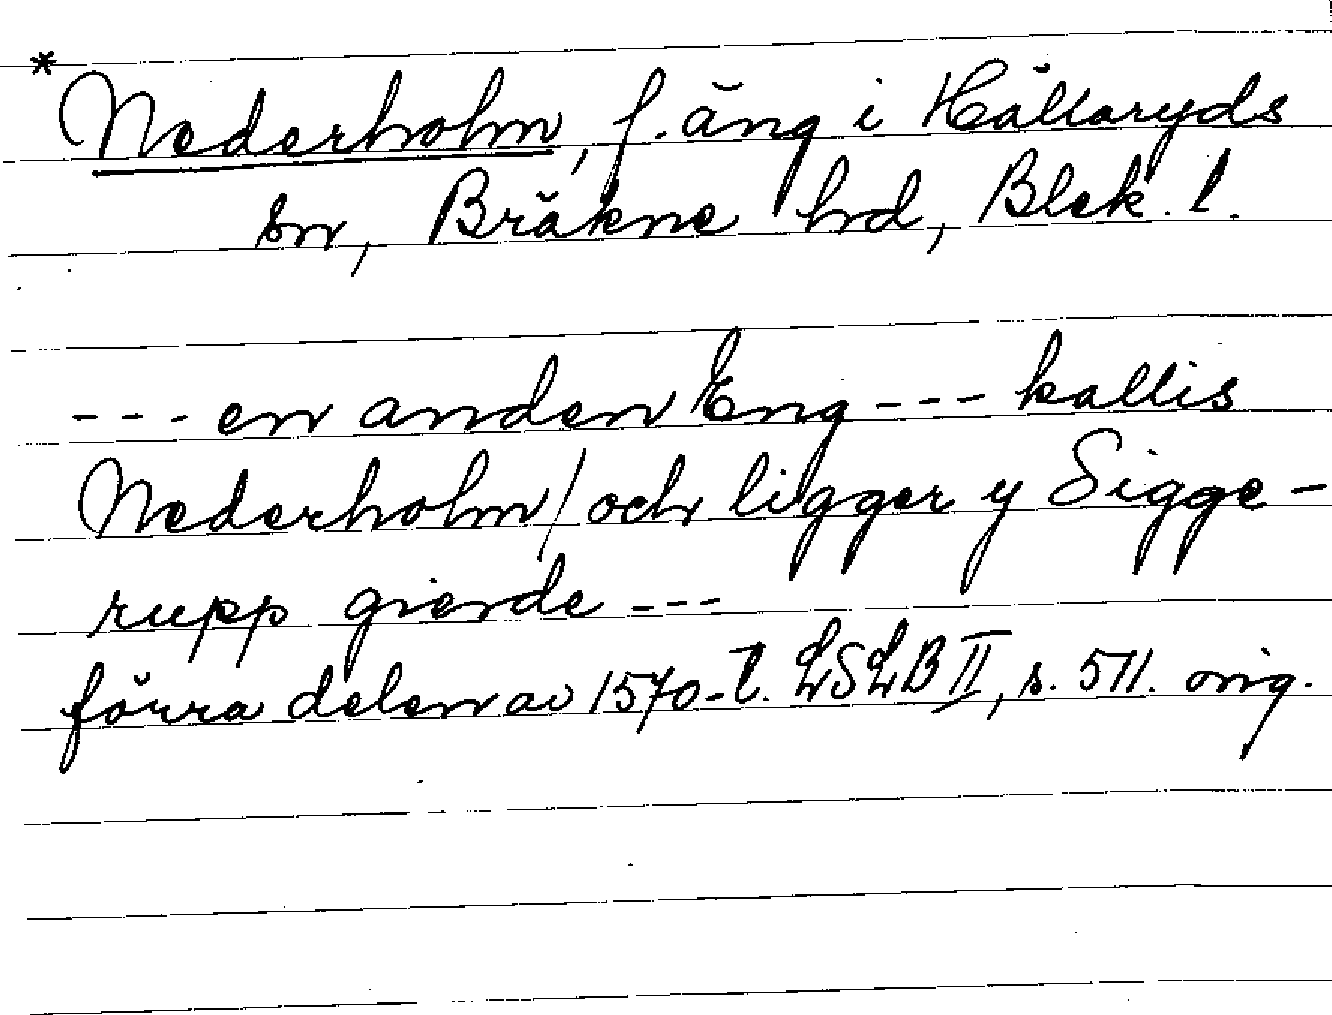 *
Nederholm, f. äng i Hällaryds
sn, Bräkne hrd, Blek. l.
--- en anden Eng --- kallis
Nederholm/ och ligger y Sigge-
rupp gierde ---
förra delen av 1570-t. LSLB II, s. 511. orig.